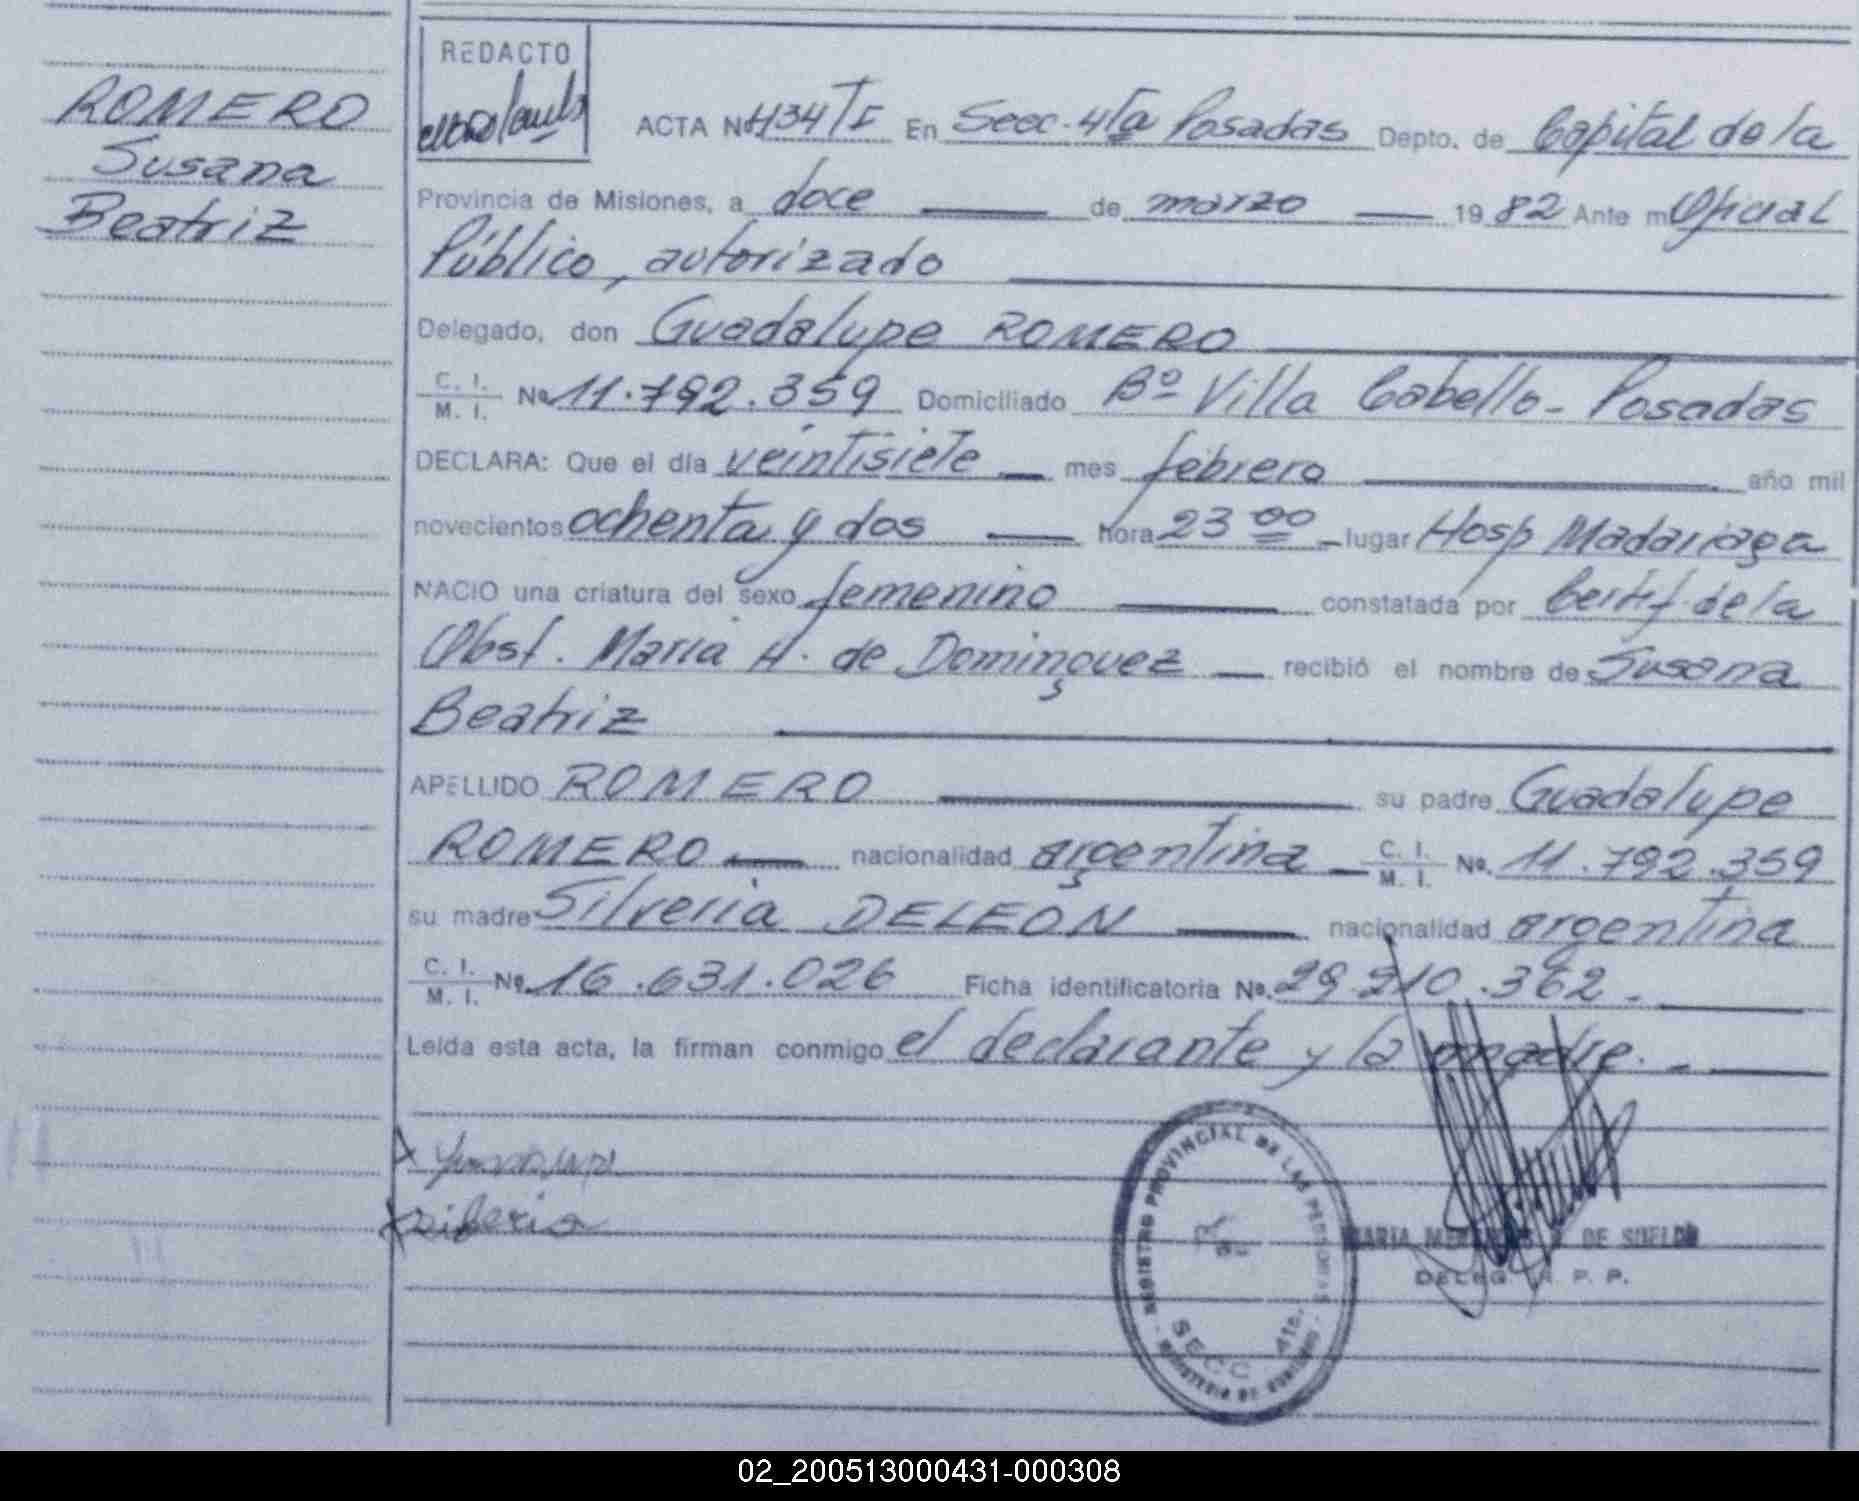 ROMERO
Susana
Beatriz
REDACTO
ACTA Nº 434 TI En Secc. 4ta Posadas Depto. de Capital de la
Provincia de Misiones, a doce de marzo 1982 Ante mi Oficial
Público, autorizado
Delegado, don Guadalupe ROMERO
C. I.
M. I. Nº 11.792.359 Domiciliado Bº Villa Cabello - Posadas
DECLARA: Que el día veintisiete mes febrero año mil
novecientos ochenta y dos hora 23 00 lugar Hosp Madariaga
NACIO una criatura del sexo femenino constatada por Certif. de la
Obst. Maria H. de Dominguez recibió el nombre de Susana
Beatriz
APELLIDO ROMERO su padre Guadalupe
ROMERO nacionalidad argentina C. I.
M. I. Nº. 11.792.359
su madre Silveria DELEON nacionalidad argentina
C. I.
M. I. Nº 16.631.026 Ficha identificatoria Nº. 29.210.362.
Leída esta acta, la firman conmigo el declarante y la madre.
REGISTRO PROVINCIAL DE LAS PERSONAS
SECC 4ta.
MARIA DE SUELDO
DELEG. R. P. P.
02_200513000431-000308